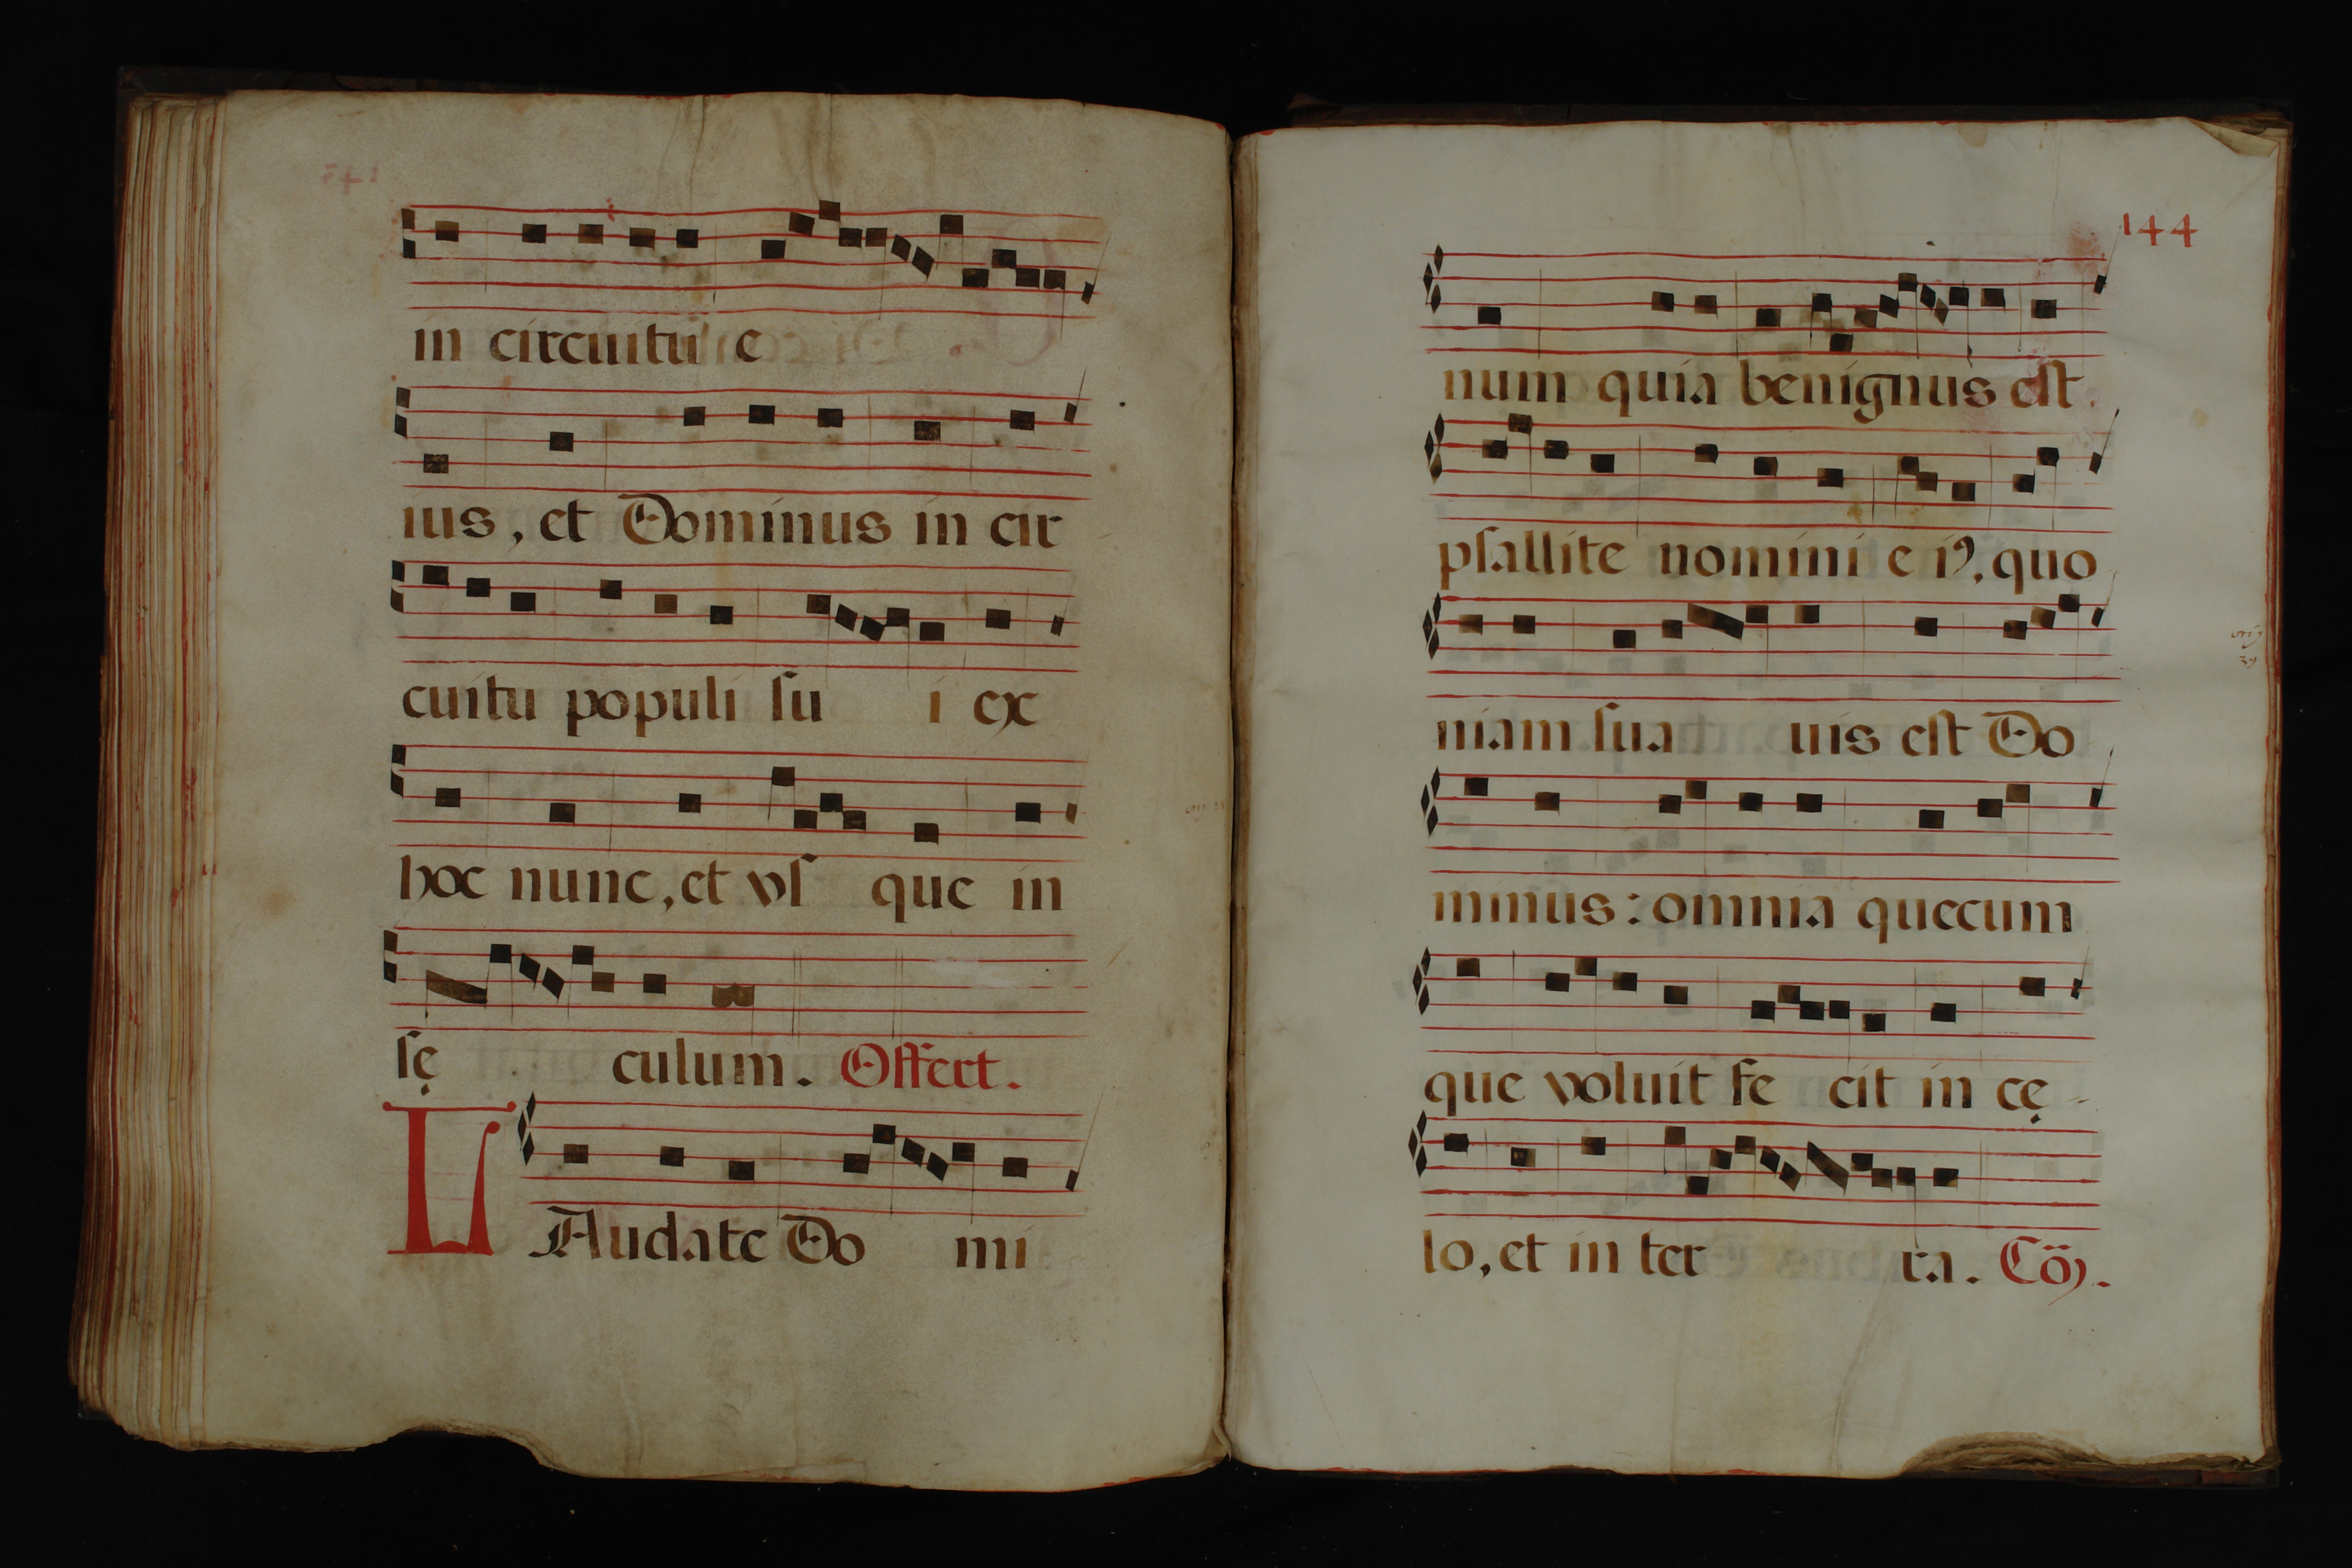 in circuitu e
ius, et Dominus in cir
cuitu populi ſu i ex
hoc nunc, et vſ que in
ſę culum. Offert.
LAudate Do mi
144
num quia benignus eſt.
pſallite nomini e iꝰ, quo
niam ſua uis eſt Do
minus: omnia quecum
que voluit fe cit in cę-
lo, et in ter ra. Cõ.